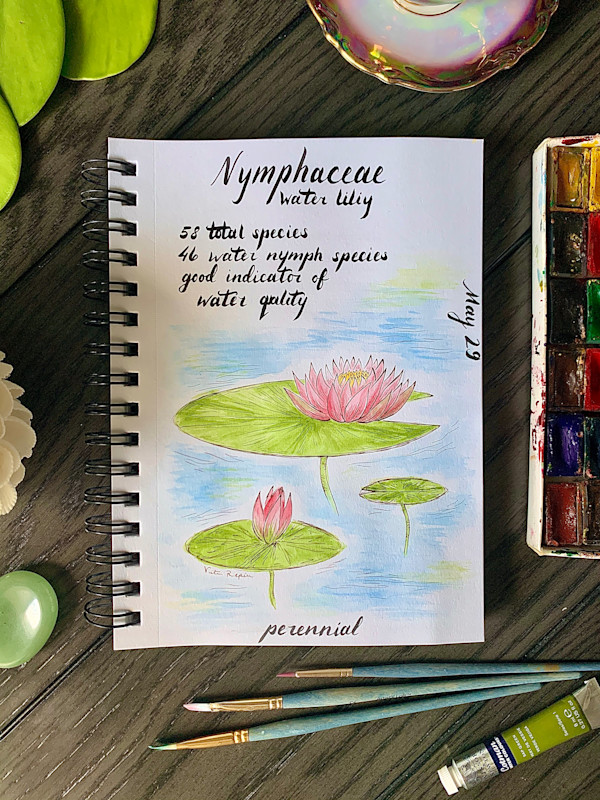 Nymphaceae
water liliy
58 total species
46 water nymph species
good indicator of
water qality
May 29
perennial
Cotman